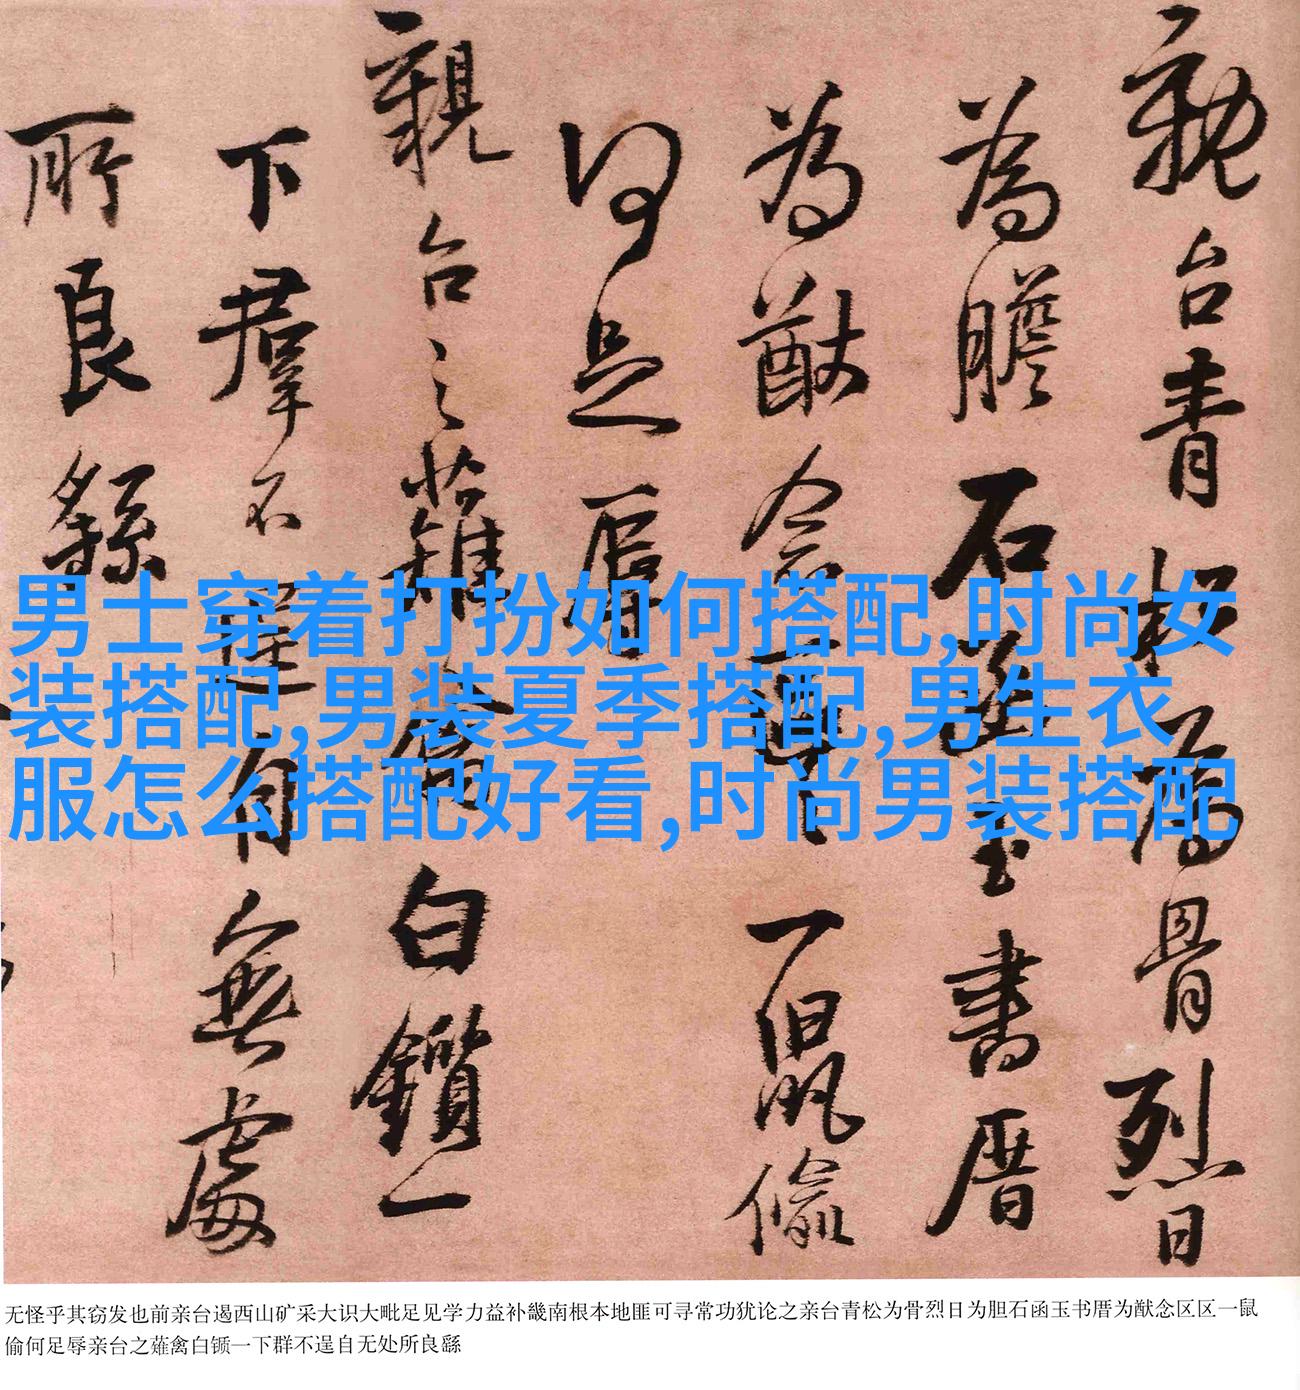 親台青松為骨烈日
為膽石函玉書厝
為猷念區區一鼠偷
何足辱
親台之薙禽白鑕一
下羣不逞自無處
所良繇
男士穿着打扮如何搭配,时尚女
装搭配,男装夏季搭配,男生衣
服怎么搭配好看,时尚男装搭配
无怪乎其窃发也前亲台遏西山矿采大识大毗足见学力益补畿南根本地匪可寻常功犹论之亲台青松为骨烈日为胆石函玉书厝为猷念区区一鼠
偷何足辱亲台之薙禽白锧一下群不逞自无处所良繇